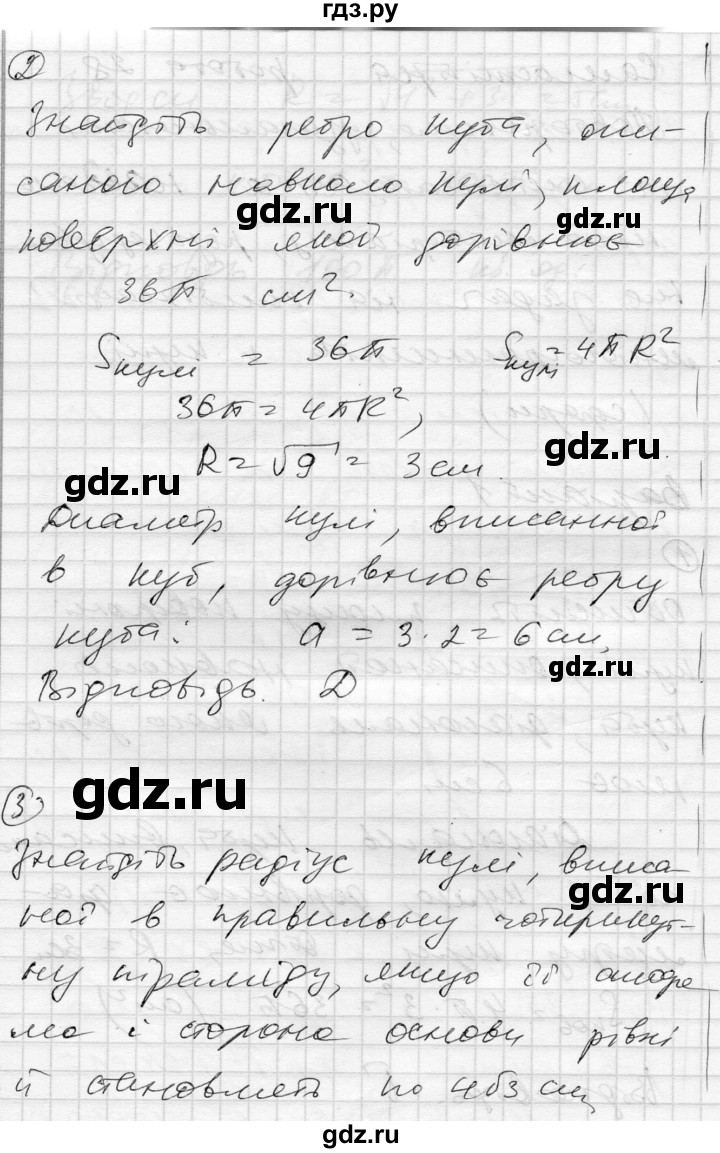 гдз.ру
2
Знайдіть ребро куба, опи-
саного навколо кулі, площа
поверхні якої дорівнює
36π см².
Sкулі = 36π Sкулі = 4πR²
36π = 4πR²,
R = √9 = 3 см.
Диаметр кулі, вписанної
в куб, дорівнює ребру
куба: a = 3·2 = 6 см,
Відповідь. Д
3
Знайдіть радіус кулі, вписа-
ної в правильну чотирикут-
ну піраміду, якщо її апофе
ма і сторона основи рівні
й становлять по 4√3 см,
gdz.ru
gdz.ru
gdz.ru
gdz.ru
gdz.ru
gdz.ru
gdz.ru
gdz.ru
gdz.ru